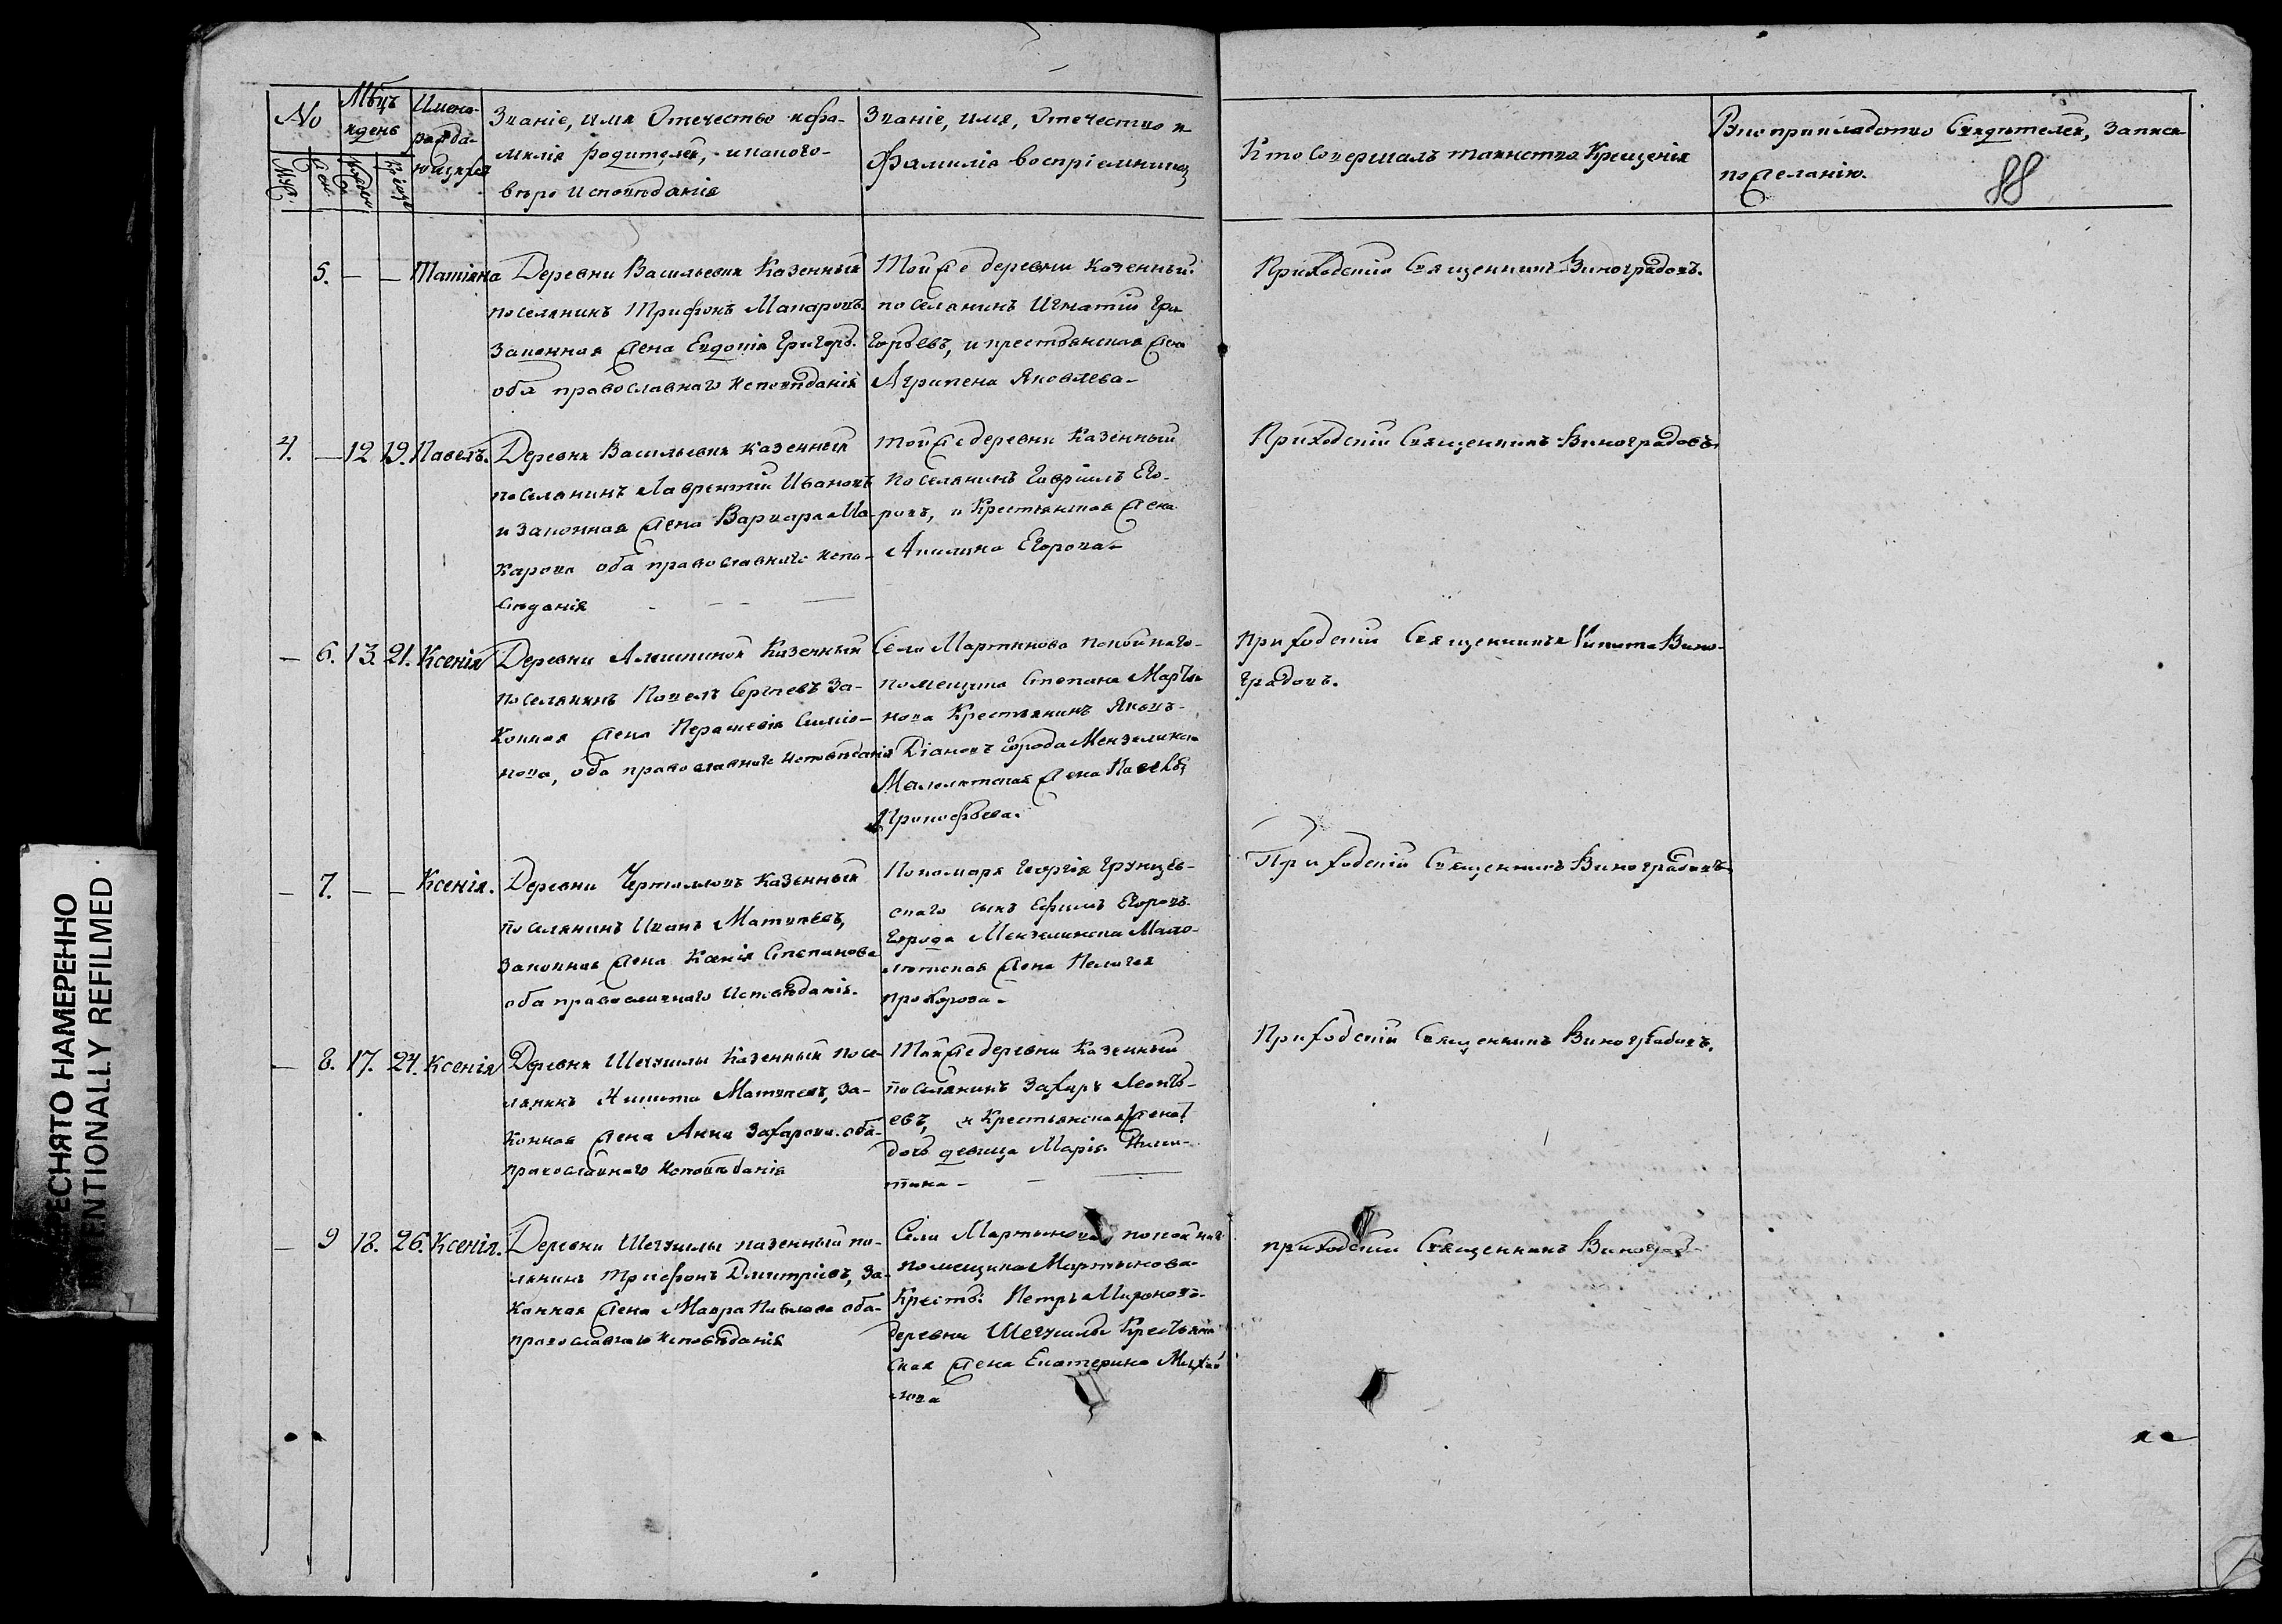 No
Мѣцъ
и день
Имена
рожда-
ющихся
Званіе, имя Отечество и фа-
милія родителей, и какого-
вѣро исповѣданія
Званіе, имя, Отечество и
Фамилія воспріемниковъ
Кто Совершалъ таинство Крещенія
Рукоприкладство Свидѣтелей, записи
по желанію.
88
Муж.
Жен.
Рожден
Крещ
5. — — Татіяна
Деревни Васильевки Казенный
поселянинъ Трифонъ Макаровъ.
Законная жена Евдокія Григорь.
оба православнаго исповѣданія
Той же деревни Казенный
поселянинъ Игнатій Гри
горьевъ, и крестьянская жена
Агрипена Яковлева-
Приходскій Священникъ Виноградовъ.
4. — 12 19. Павелъ.
Деревни Васильевки Казенный
поселянинъ Лаврентій Ивановъ
и законная жена Варвара Ма-
карова оба православнаго испо-
вѣданія
Той же деревни Казенный
поселянинъ Гавріилъ Его-
ровъ, и Крестьянская жена
Акилина Егорова-
Приходскій Священникъ Виноградовъ.
— 6. 13. 21. Ксенія
Деревни Алешкиной Казенный
поселянинъ Павелъ Сергѣевъ За-
конная жена Параскевія Симіо-
нова, оба православнаго исповѣданія
Села Мартынова покойнаго-
помещика Степана Марты
нова Крестьянинъ Яковъ-
Діановъ города Мензелинска
Малолетская жена
Прокофьева.
Приходскій Священникъ Никита Вино-
градовъ.
— 7. — — Ксенія.
Деревни Казенный
поселянинъ Иванъ Матвѣевъ,
Законная жена Ксенія Степанова
оба православнаго исповѣданія.
Пономаря Георгія Грунцев-
скаго сынъ Ефимъ Егоровъ.
города Мензелинска Мало-
летская жена Пелагея
Прохорова-
Приходскій Священникъ Виноградовъ
— 8. 17. 24. Ксенія
Деревни Шегушлы Казенный посе-
лянинъ Никита Матвѣевъ, за-
конная жена Анна Захарова. оба-
православнаго исповѣданія
Той же деревни Казенный
поселянинъ Захаръ Леонть-
евъ, и Крестьянская жена
дочь девица Марія. Ники-
тина-
Приходскій Священникъ Виноградовъ.
— 9 18. 26. Ксенія.
Деревни Шегушлы казенный по-
лянинъ Трифонъ Дмитріевъ, За-
конная жена Мавра Павлова оба-
православнаго исповѣданія
Села Мартынова покойнаг
помещика Мартынова-
Кресть: Петръ Мироновъ-
деревни Шегушлы Крестьян
ская жена Екатерина Михай
лова
приходскій Священникъ Виноград
ПЕРЕСНЯТО НАМЕРЕННО
INTENTIONALLY REFILMED